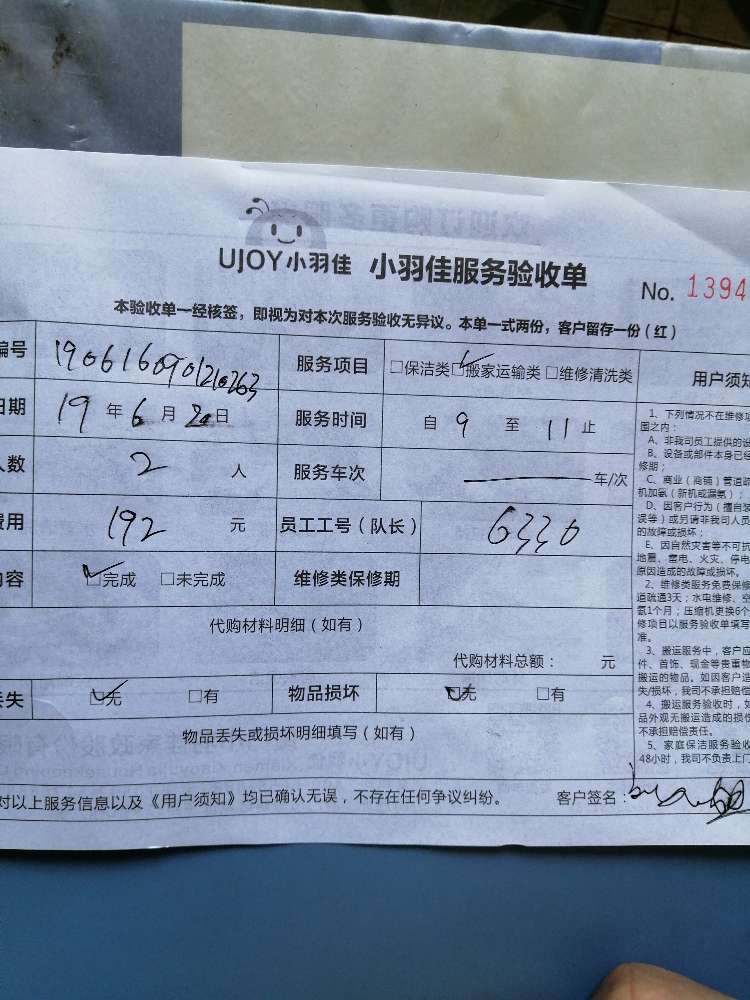 UJOY小羽佳 小羽佳服务验收单
No. 1394
本验收单一经核签，即视为对本次服务验收无异议。本单一式两份，客户留存一份（红）
编号 1906160901210263 服务项目 □保洁类□搬家运输类 □维修清洗类
日期 19 年 6 月 20 日 服务时间 自 9 至 11 止
人数 2 人 服务车次 车/次
费用 192 元 员工工号（队长） 6330
内容 □完成 □未完成 维修类保修期
代购材料明细（如有）
代购材料总额： 元
丢失 □无 □有 物品损坏 □无 □有
物品丢失或损坏明细填写（如有）
对以上服务信息以及《用户须知》均已确认无误，不存在任何争议纠纷。 客户签名：
用户须知
1、下列情况不在维修
围之内：
A、非我司员工提供的设
B、设备或部件本身已经
修期；
C、商业（商铺）管道疏
机加氨（新机或漏氨）；
D、因客户行为（擅自装
误等）或另请非我司人员
的故障或损坏；
E、因自然灾害等不可抗
地震、雷电、火灾、停电
原因造成的故障或损坏。
2、维修类服务免费保修
道疏通3天；水电维修、空
氨1个月；压缩机更换6个
修项目以服务验收单填写
准。
3、搬运服务中，客户应
件、首饰、现金等贵重物
搬运的物品。如因客户造
失/损坏，我司不承担赔偿
4、搬运服务验收时，如
品外观无搬运造成的损伤
不承担赔偿责任。
5、家庭保洁服务验收
48小时，我司不负责上门